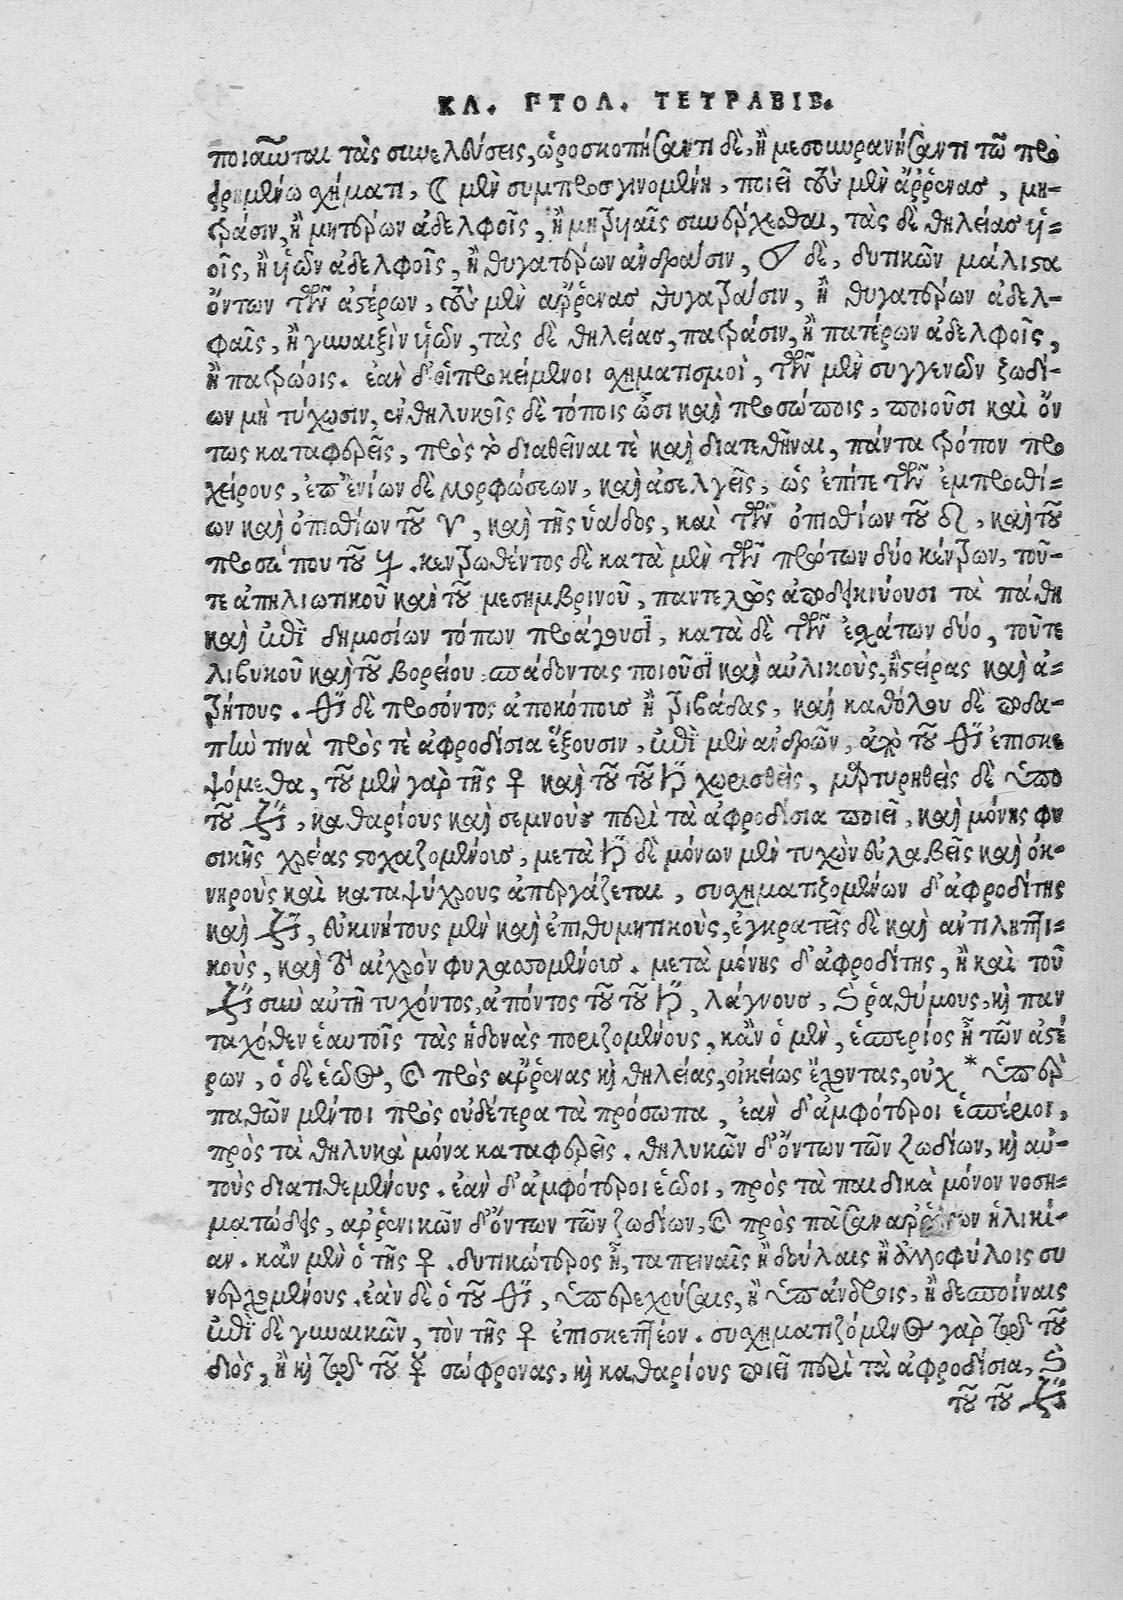 ΚΛ. ΠΤΟΛ. ΤΕΤΡΑΒΙΒ.
ποιοῦνται τὰς συνελεύσεις, ὡροσκοπήσαντι δὲ, ἢ μεσουρανήσαντι τῶ προ
ειρημένω σχήματι, ☾ μὲν συμπροσγινομένη, ποιεῖ τοὺς μὲν ἄῤῥενας, μη-
τράσιν, ἢ μητέρων ἀδελφοῖς, ἢ μητρυαῖς συνέρχεσθαι, τὰς δὲ θηλείας ὑ-
οῖς, ἢ ὑῶν ἀδελφοῖς, ἢ θυγατέρων ἀνδράσιν, ♂ δὲ, δυτικῶν μάλιστα
ὄντων τῶν ἀστέρων, τοὺς μὲν ἄῤῥενας θυγατράσιν, ἢ θυγατέρων ἀδελ-
φαῖς, ἢ γυναιξὶν ὑῶν, τὰς δὲ θηλείας, πατράσιν, ἢ πατέρων ἀδελφοῖς,
ἢ πατρώοις. ἐὰν δ' οἱ προκείμενοι σχηματισμοὶ, τῶν μὲν συγγενῶν ζωδί-
ων μὴ τύχωσιν, ἐν θηλυκοῖς δὲ τόποις ὦσι καὶ προσώποις, ποιοῦσι καὶ ὄν
τως καταφερεῖς, πρὸς τὸ διαθεῖναι τὲ καὶ διατεθῆναι, πάντα τρόπον προ
χείρους, ἐπ' ἐνίων δὲ μορφώσεων, καὶ ἀσελγεῖς, ὡς ἐπίτε τῶν ἐμπροσθί-
ων καὶ ὀπισθίων τοῦ ♈, καὶ τῆς ὑάδος, καὶ τῶν ὀπισθίων τοῦ ♌, καὶ τοῦ
προσώπου τοῦ ♑. κεντρωθέντος δὲ κατὰ μὲν τῶν πρώτων δύο κέντρων, τοῦ-
τε ἀπηλιωτικοῦ καὶ τοῦ μεσημβρινοῦ, παντελῶς ἀποδεικνύουσι τὰ πάθη
καὶ ἐπὶ δημοσίων τόπων προάγουσϊ, κατὰ δὲ τῶν ἐσχάτων δύο, τοῦτε
λιβυκοῦ καὶ τοῦ βορείου σπάδοντας ποιοῦσϊ καὶ αὐλικοὺς, ἢ στείρας καὶ ἀ-
τρήτους. ♂ δὲ προσόντος ἀποκόπους ἢ τριβάδας, καὶ καθόλου δὲ ποδα-
πήν τινα πρὸς τὲ ἀφροδίσια ἕξουσιν, ἐπὶ μὲν ἀνδρῶν, ἀπὸ τοῦ ♂ ἐπισκε
ψόμεθα, τοῦ μὲν γὰρ τῆς ♀ καὶ τοῦ τοῦ ♄ χωρισθεὶς, μαρτυρηθεὶς δὲ ὑπὸ
τοῦ ♃, καθαρίους καὶ σεμνοὺς περὶ τὰ ἀφροδίσια ποιεῖ, καὶ μόνης φυ
σικῆς χρείας στοχαζομένους, μετὰ ♄ δὲ μόνων μὲν τυχὼν εὐλαβεῖς καὶ ὀκ-
νηροὺς καὶ καταψύχρους ἀπεργάζεται, συσχηματιζομένων δ' ἀφροδίτης
καὶ ♃, εὐκινήτους μὲν καὶ ἐπιθυμητικοὺς, ἐγκρατεῖς δὲ καὶ ἀντιληπτι-
κοὺς, καὶ τὸ αἰσχρὸν φυλασσομένους. μετὰ μόνης δ' ἀφροδίτης, ἢ καὶ τοῦ
♃ σὺν αὐτῆ τυχόντος, ἀπόντος τοῦ τοῦ ♄, λάγνους, καὶ ῥαθύμους, καὶ παν
ταχόθεν ἑαυτοῖς τὰς ἡδονὰς ποριζομένους, κἂν ὁ μὲν, ἑσπερίος ᾖ τῶν ἀστέ
ρων, ὁ δὲ ἑῶος, καὶ πρὸς ἄῤῥενας καὶ θηλείας, οἰκείως ἔχοντας, οὐχ * ὑπερ
παθῶν μέντοι πρὸς οὐδέτερα τὰ πρόσωπα, ἐὰν δ' ἀμφότεροι ἑσπέριοι,
πρὸς τὰ θηλυκὰ μόνα καταφερεῖς. θηλυκῶν δ' ὄντων τῶν ζωδίων, καὶ αὐ-
τοὺς διατιθεμένους. ἐὰν δ' ἀμφότεροι ἑῶοι, πρὸς τὰ παιδικὰ μόνον νοση-
ματώδεις, ἀῤῥενικῶν δ' ὄντων τῶν ζωδίων, καὶ πρὸς πᾶσαν ἀῤῥένων ἡλικί-
αν. κἂν μὲν ὁ τῆς ♀. δυτικώτερος ᾖ, ταπειναῖς ἢ δούλαις ἢ ἀλλοφύλοις συ
νερχομένους. ἐὰν δὲ ὁ τοῦ ♂, ὑπερεχούσαις, ἢ ὑπάνδροις, ἢ δεσποίναις
ἐπὶ δὲ γυναικῶν, τὸν τῆς ♀ ἐπισκεπτέον. συσχηματιζόμενος γὰρ τῶ τοῦ
διὸς, ἢ καὶ τῶ τοῦ ☿ σώφρονας, καὶ καθαρίους ποιεῖ περὶ τὰ ἀφροδίσια, καὶ
τοῦ τοῦ ♃